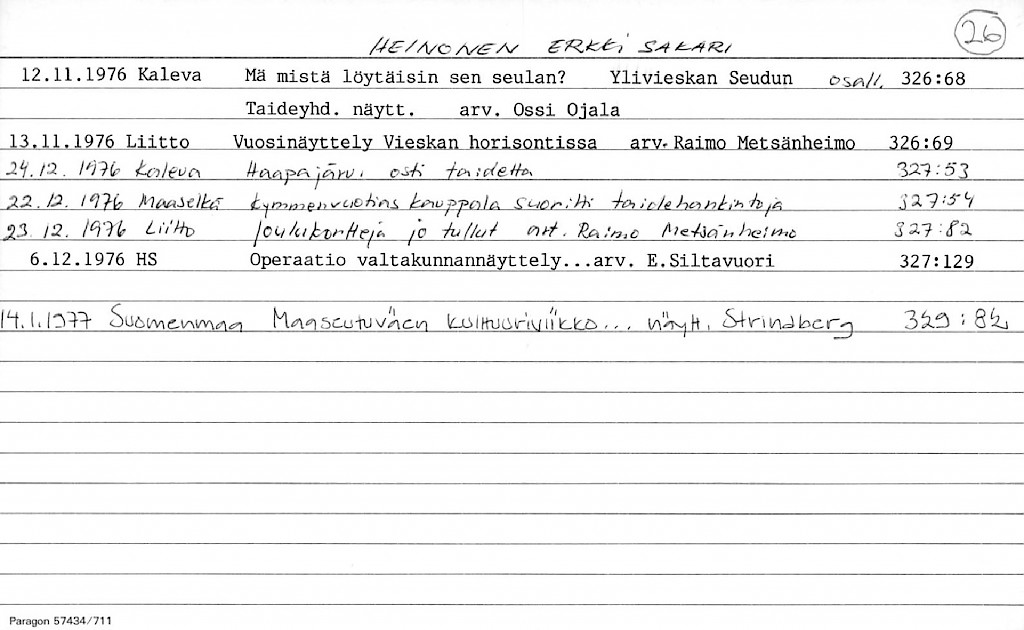 26
HEINONEN ERKKI SAKARI
12.11.1976 Kaleva Mä mistä löytäisin sen seulan? Ylivieskan Seudun osall. 326:68
Taideyhd. näytt. arv. Ossi Ojala
13.11.1976 Liitto Vuosinäyttely Vieskan horisontissa arv. Raimo Metsänheimo 326:69
24.12. 1976 Kaleva Haapajärvi osti taidetta 327:53
22.12. 1976 Maaselkä kymmenvuotias kauppala suoritti taidehankintoja 327:54
23.12. 1976 Liitto Joulukortteja jo tullut art. Raimo Metsänheimo 327:82
6.12.1976 HS Operaatio valtakunnannäyttely...arv. E.Siltavuori 327:129
14.1.1977 Suomenmaa Maaseutuväen kulttuuriviikko... näytt. Strindberg 329:82
Paragon 57434/711